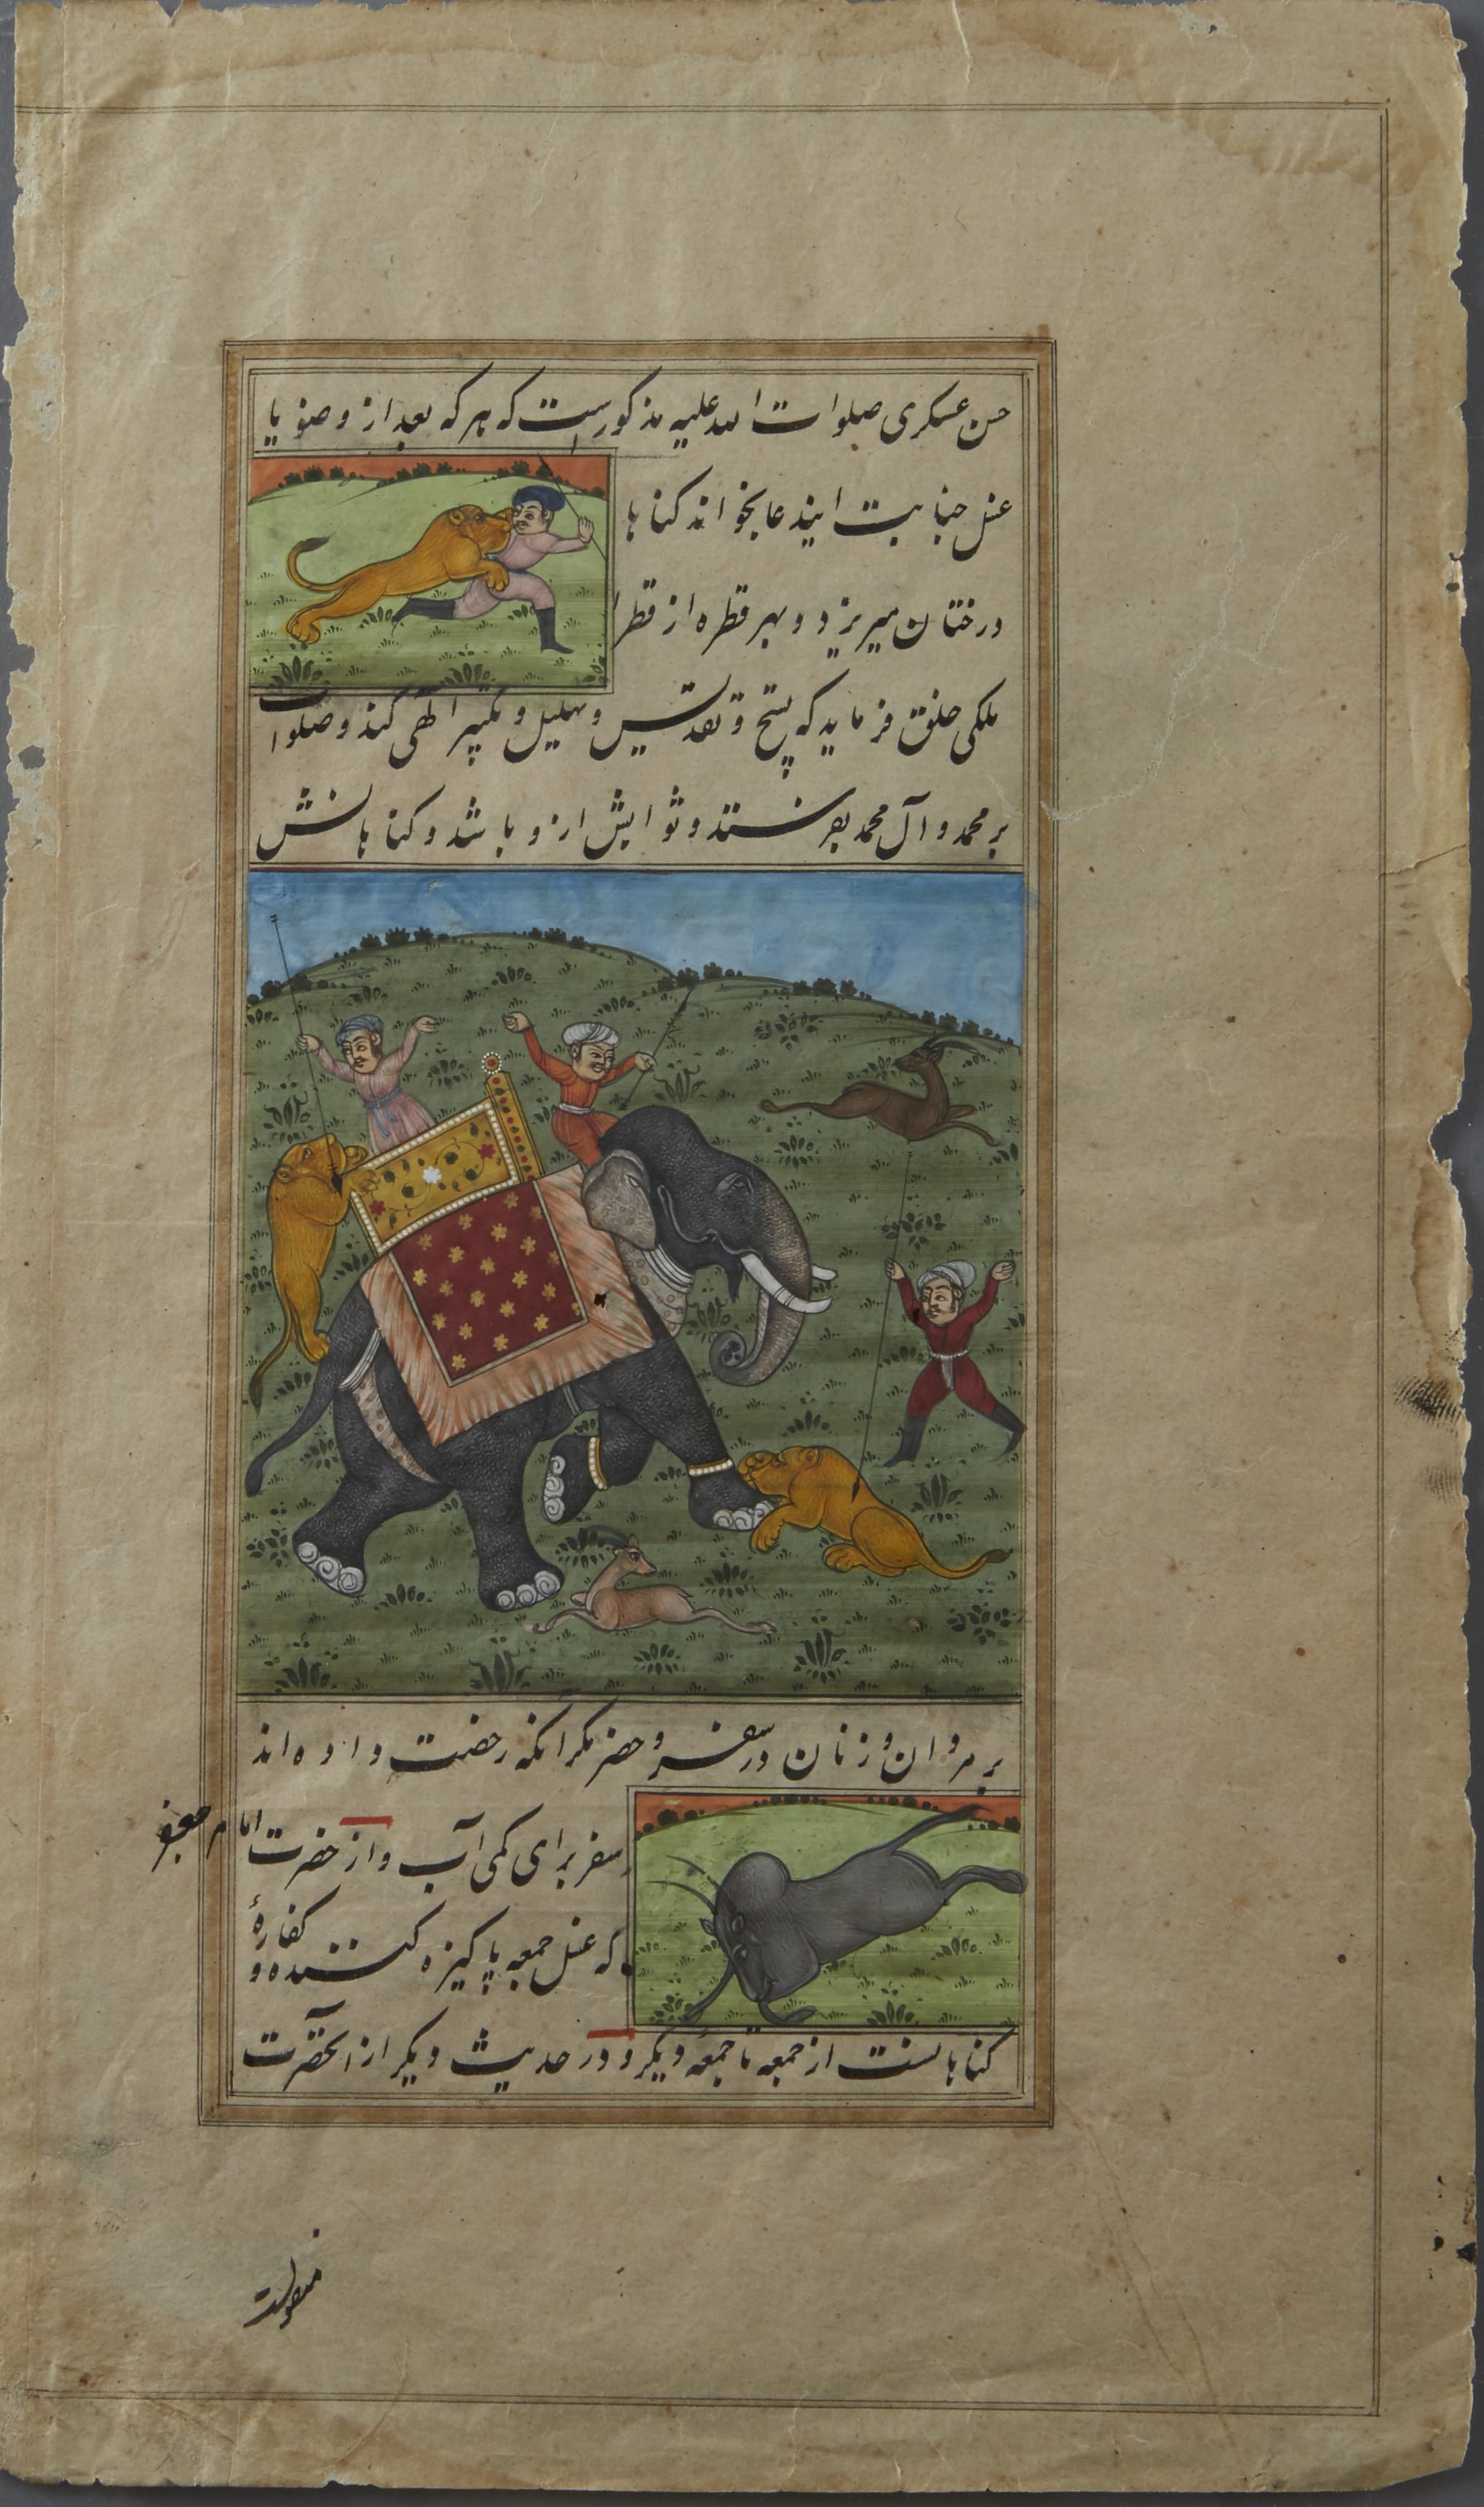 حسن عسکری صلوات الله علیه مذکورست که هر که بعد از وضو یا
غسل جنابت ایندعا بخواند کناها
درختان میریزد و بهر قطره از قطرا
ملکی خلق فرماید که تسبیح و تقدیس و تهلیل و تکبیر الهی کند و صلوات
بر محمد و آل محمد بفرستد و ثوابش از و باشد و کناهانش
بر مردان و زنان در سفر و حضر مکر آنکه رخصت داده اند
سفر برای کمی آب و از حضرت امام جعفر
که غسل جمعه پاکیزه کننده و کفارهٔ
کناهانست از جمعه تا جمعهٔ دیکر و در حدیث دیکر از آنحضرت
منقولست